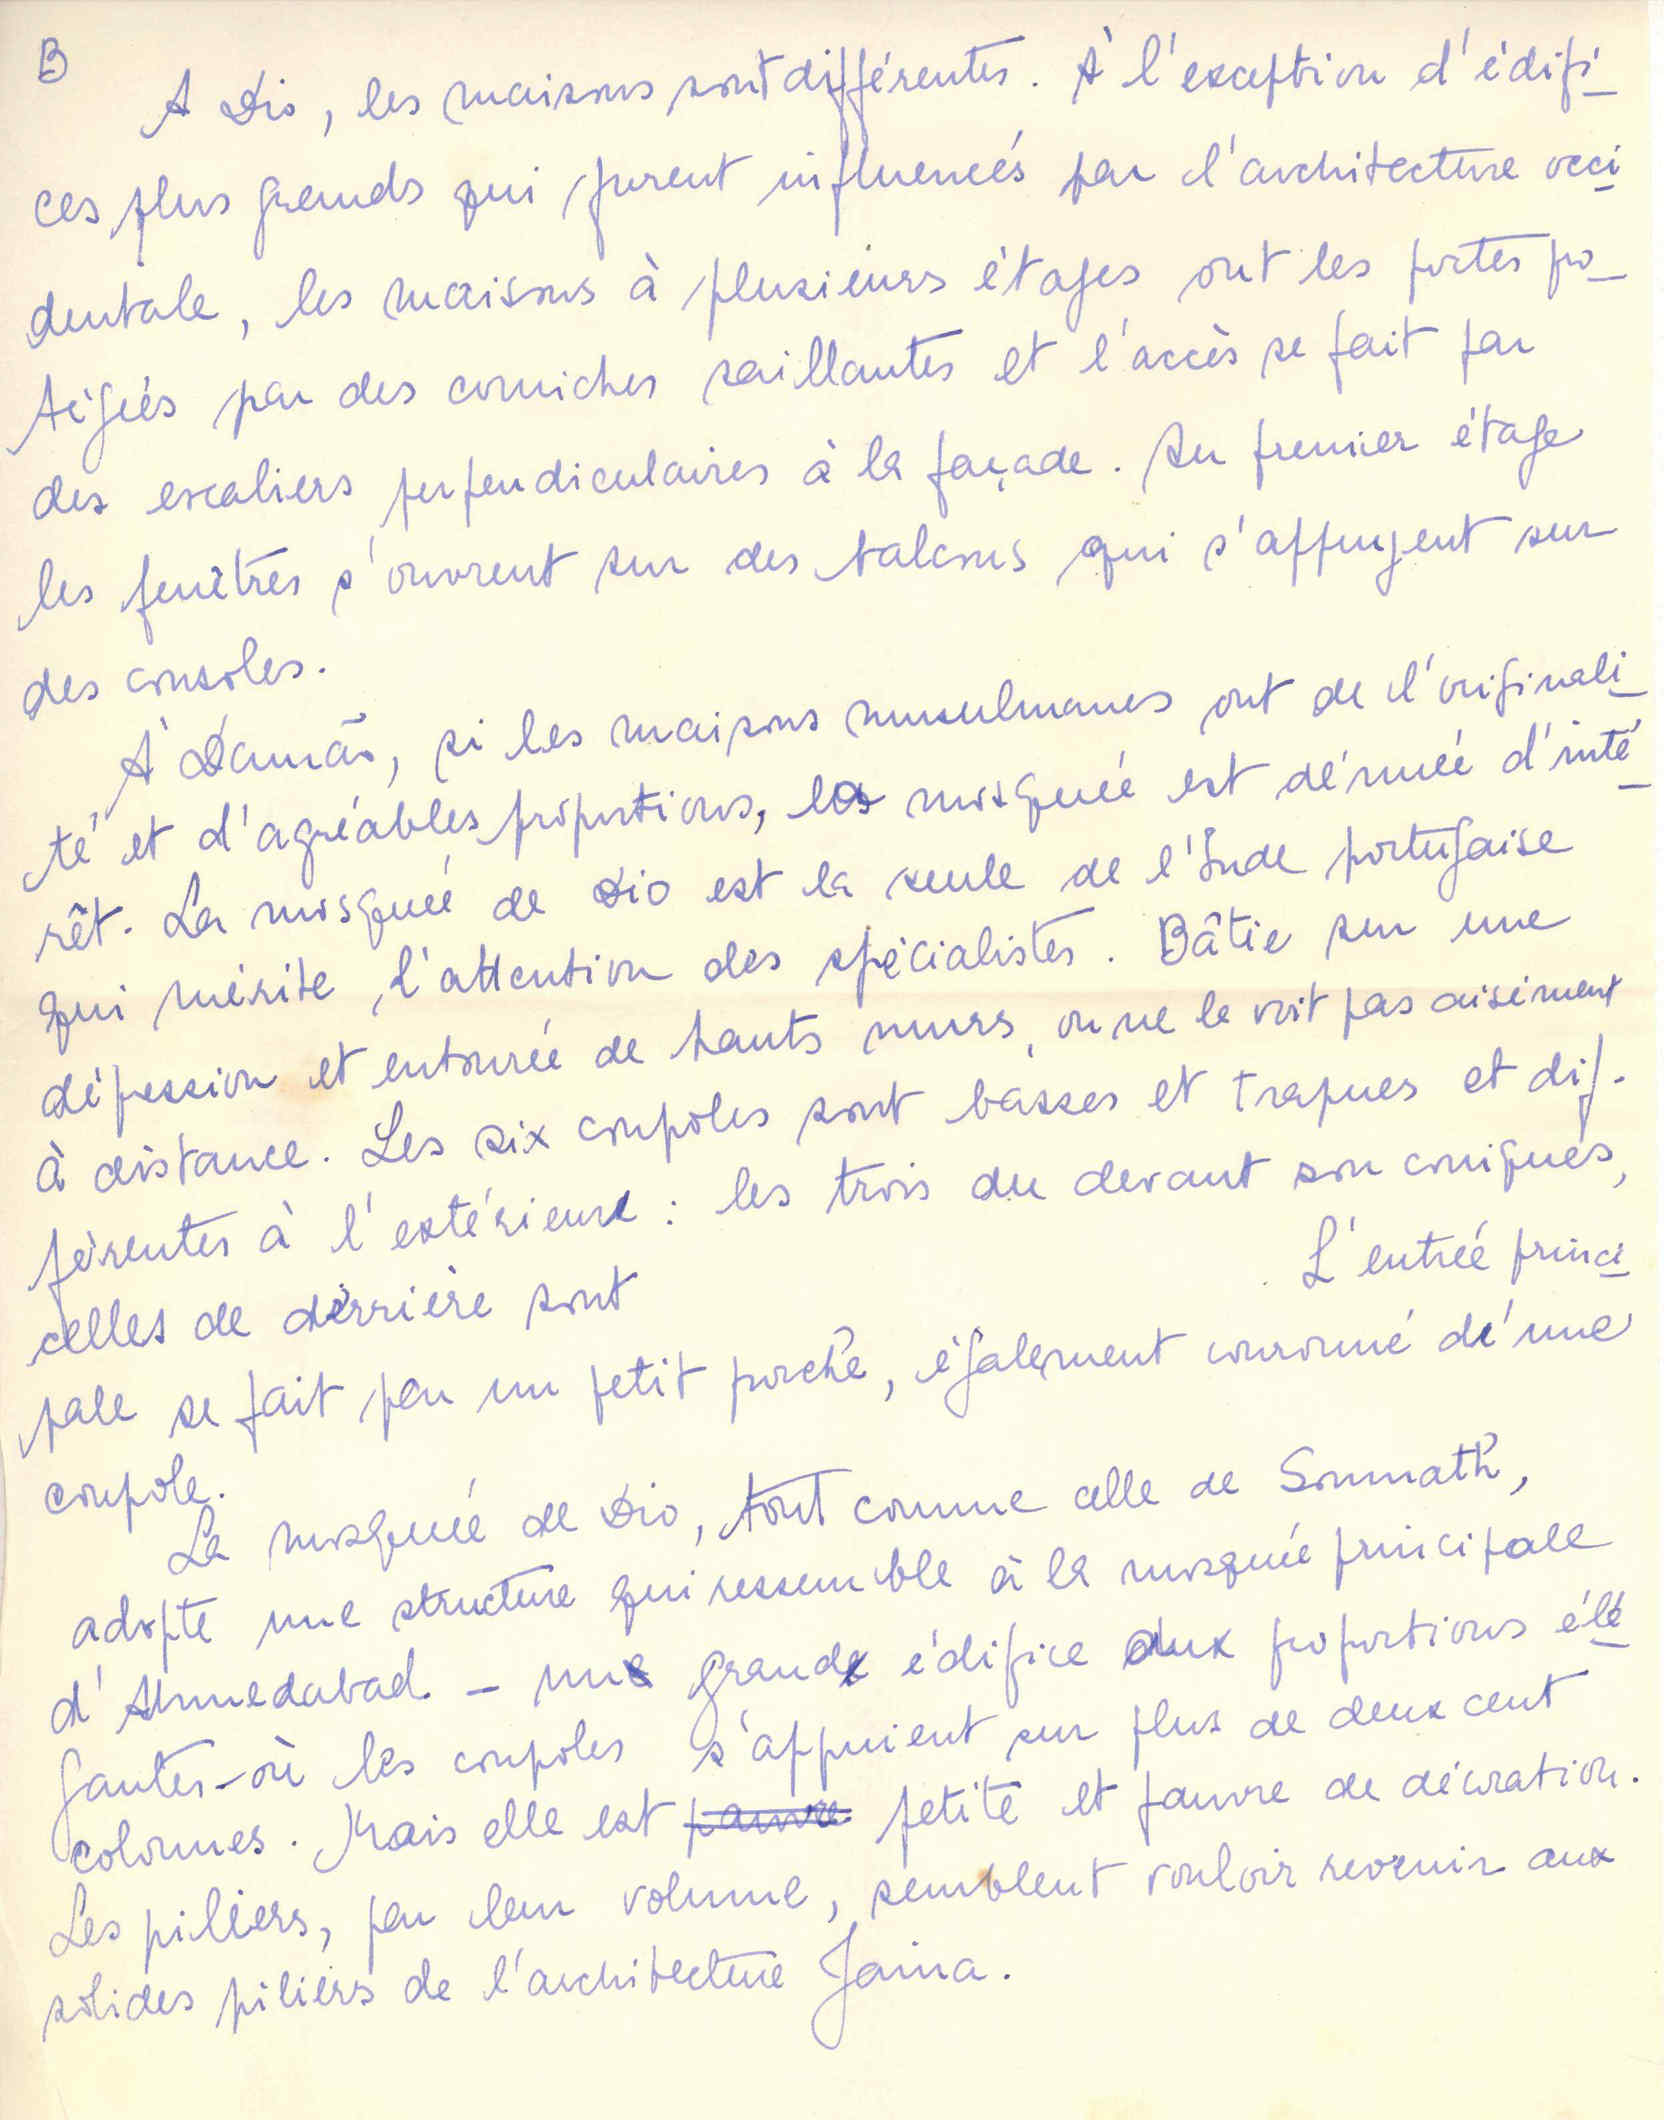 B
A Dio, les maisons sont différentes. À l'exception d'édifi-
ces plus grands qui furent influencés par l'architecture occi-
dentale, les maisons à plusieurs étages ont les portes pro-
tégées par des corniches saillantes et l'accès se fait par
des escaliers perpendiculaires à la façade. Au premier étage
les fenêtres s'ouvrent sur des balcons qui s'appuyent sur
des consoles.
À Damão, si les maisons musulmanes ont de l'originali-
té et d'agréables proportions, la mosquée est dénuée d'inté-
rêt. La mosquée de Dio est la seule de l'Inde portugaise
qui mérite l'attention des spécialistes. Bâtie sur une
dépression et entourée de hauts murs, on ne la voit pas aisément
à distance. Les six coupoles sont basses et trapues et dif-
férentes à l'extérieur : les trois du devant son coniques,
celles de derrière sont L'entrée princi-
pale se fait par un petit porche, également couronné d'une
coupole.
La mosquée de Dio, tout comme celle de Somnath,
adopte une structure qui ressemble à la mosquée principale
d'Ahmedabad - un grand édifice aux proportions élé-
gantes - où les coupoles s'appuient sur plus de deux cent
colonnes. Mais elle est pauvre petite et pauvre de décoration.
Les piliers, par leur volume, semblent vouloir revenir aux
solides piliers de l'architecture Jaina.